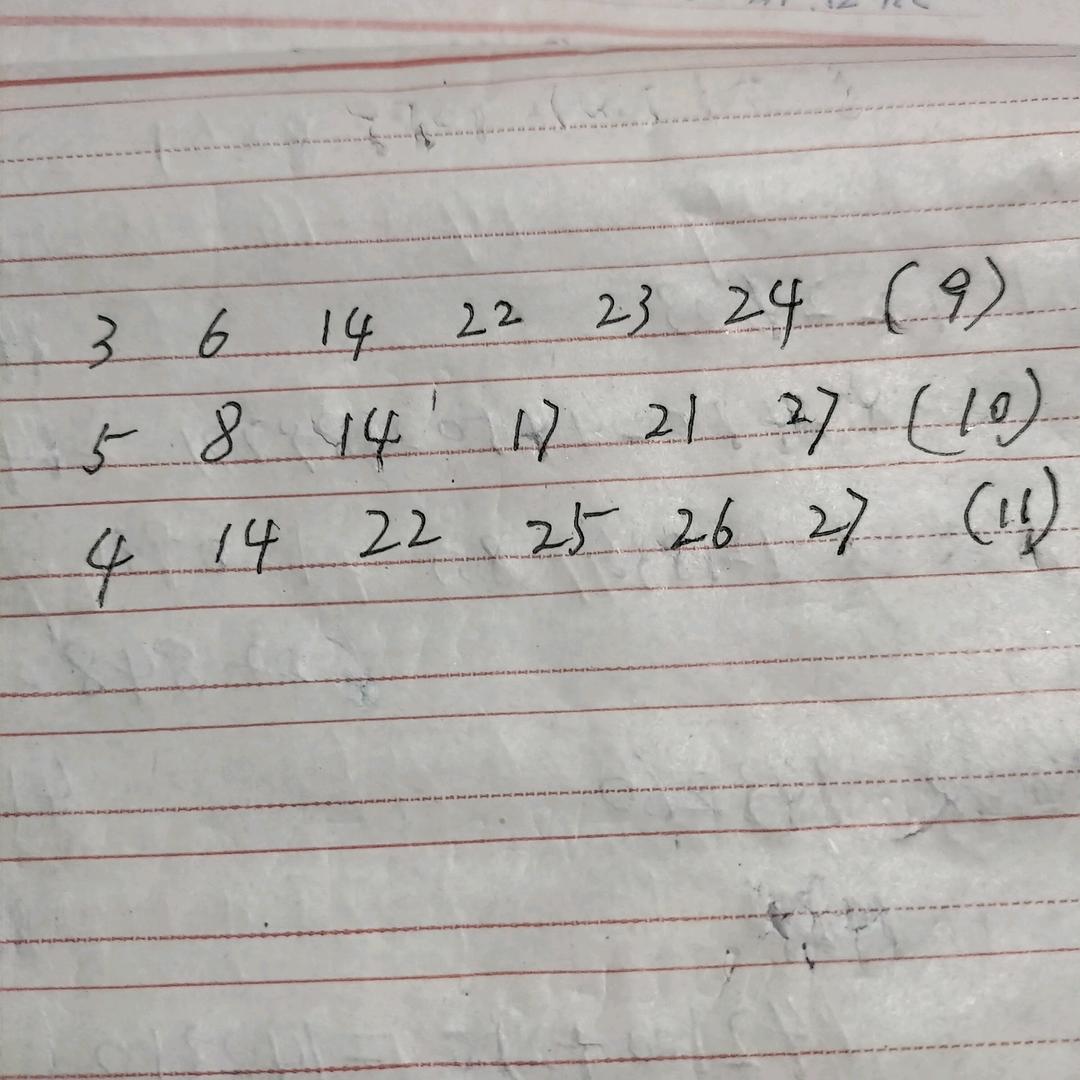 3 6 14 22 23 24 (9)
5 8 14 17 21 27 (10)
4 14 22 25 26 27 (11)